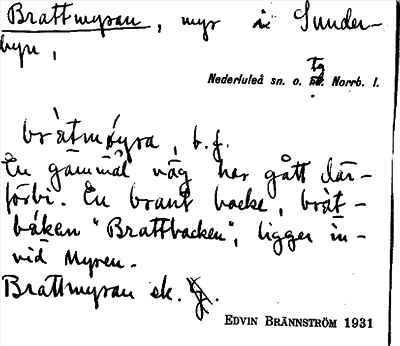 Brattmyran, myr i Sunder-
byn,
Nederluleå sn. o. tg Norrb. l.
bràtmøyra, b.f.
En gammal väg har gått där-
förbi. En brant backe, bràt-
báken "Brattbacken", ligger in-
vid Myren.
Brattmyran ek.
EDVIN BRÄNNSTRÖM 1931